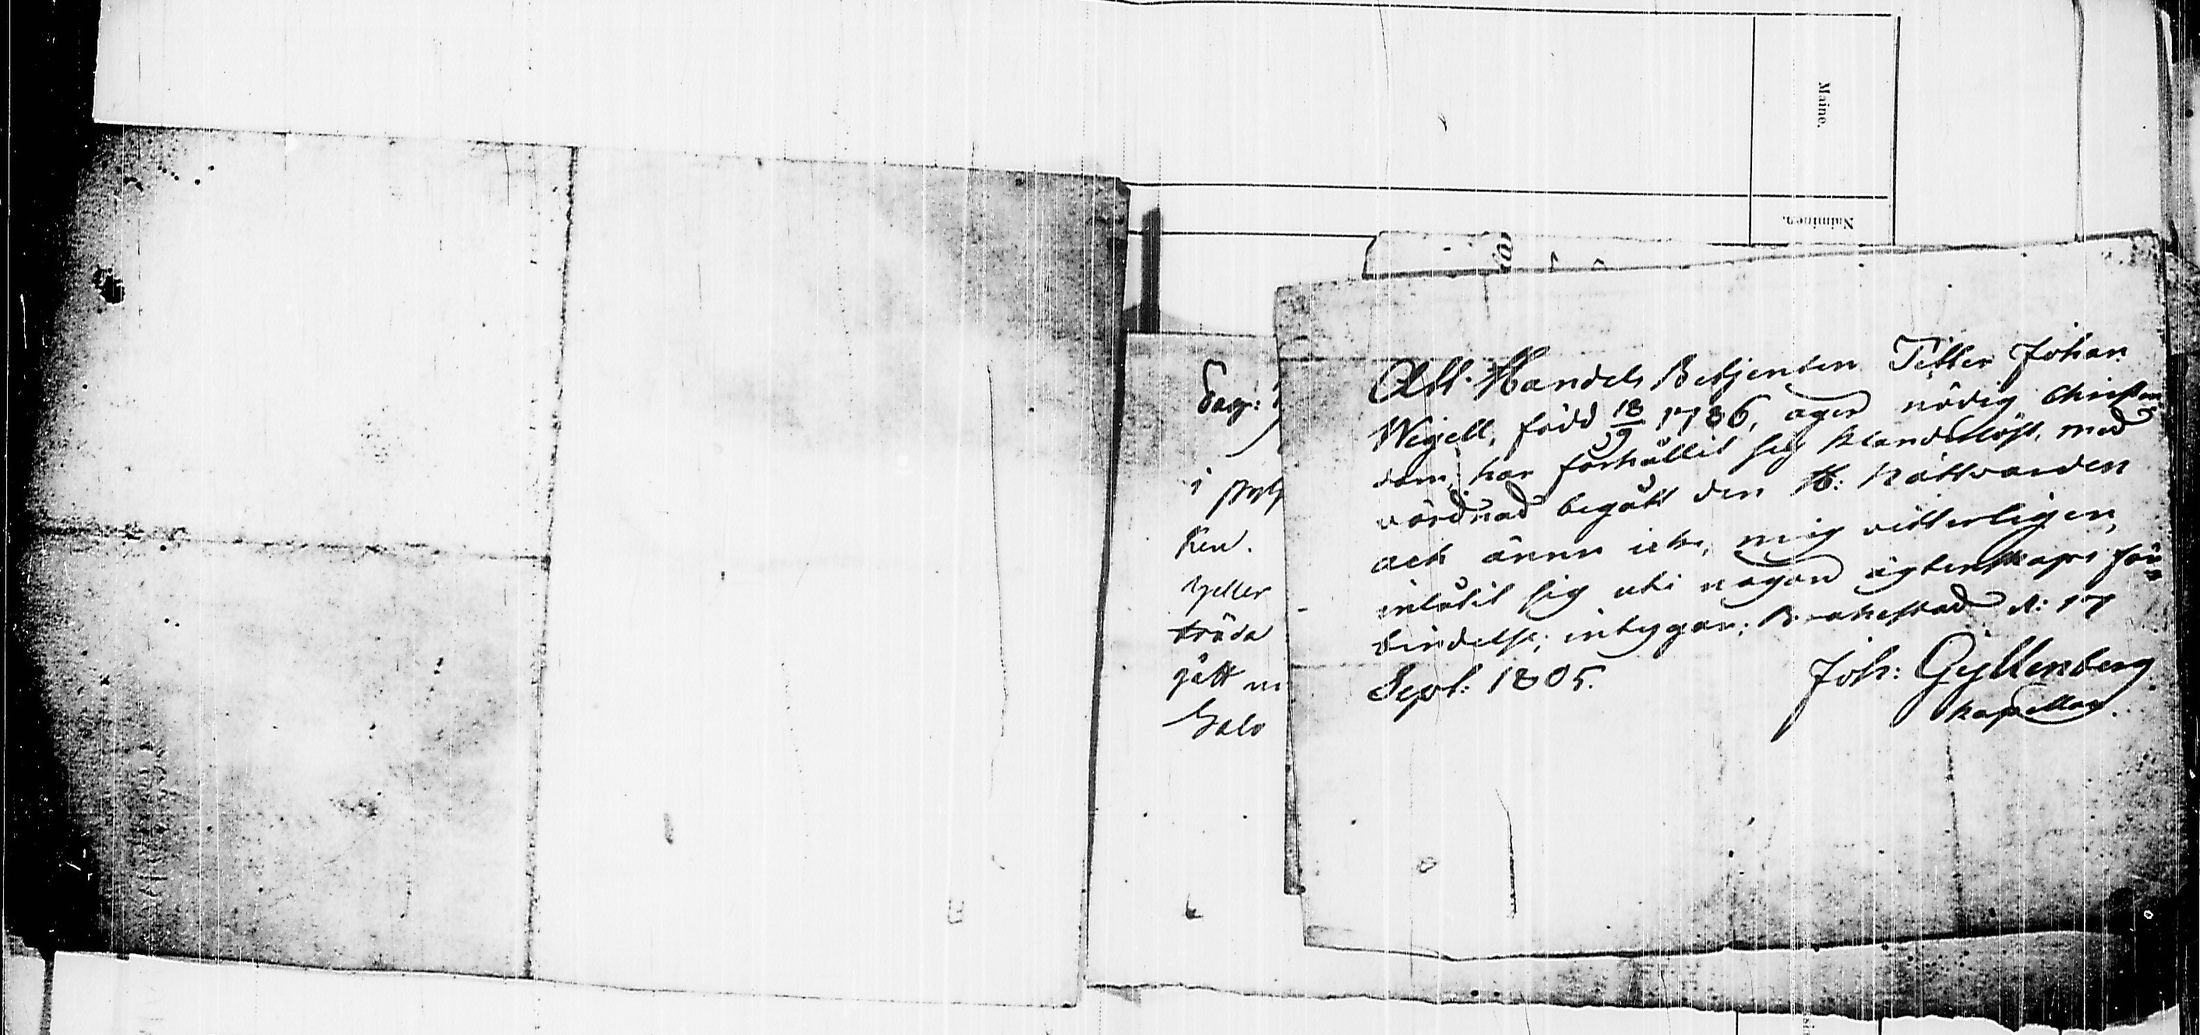 Maine.
Naiminen.
Sasp:
i
Ren.
träda
gått
Att Handels Betjenten Petter Johan
Wegell, född 18/9 1786, äger nödig Christen-
dom, har förhållit sig klanderlöst, med
vördnad begått den H: Nattvarden
och ännu icke, mig vitterligen,
inlåtit sig uti någon ägtenskaps för-
bindelse; intygar; Brahestad d: 17
Sept: 1805.
Joh: Gyllenberg
Kapellan.